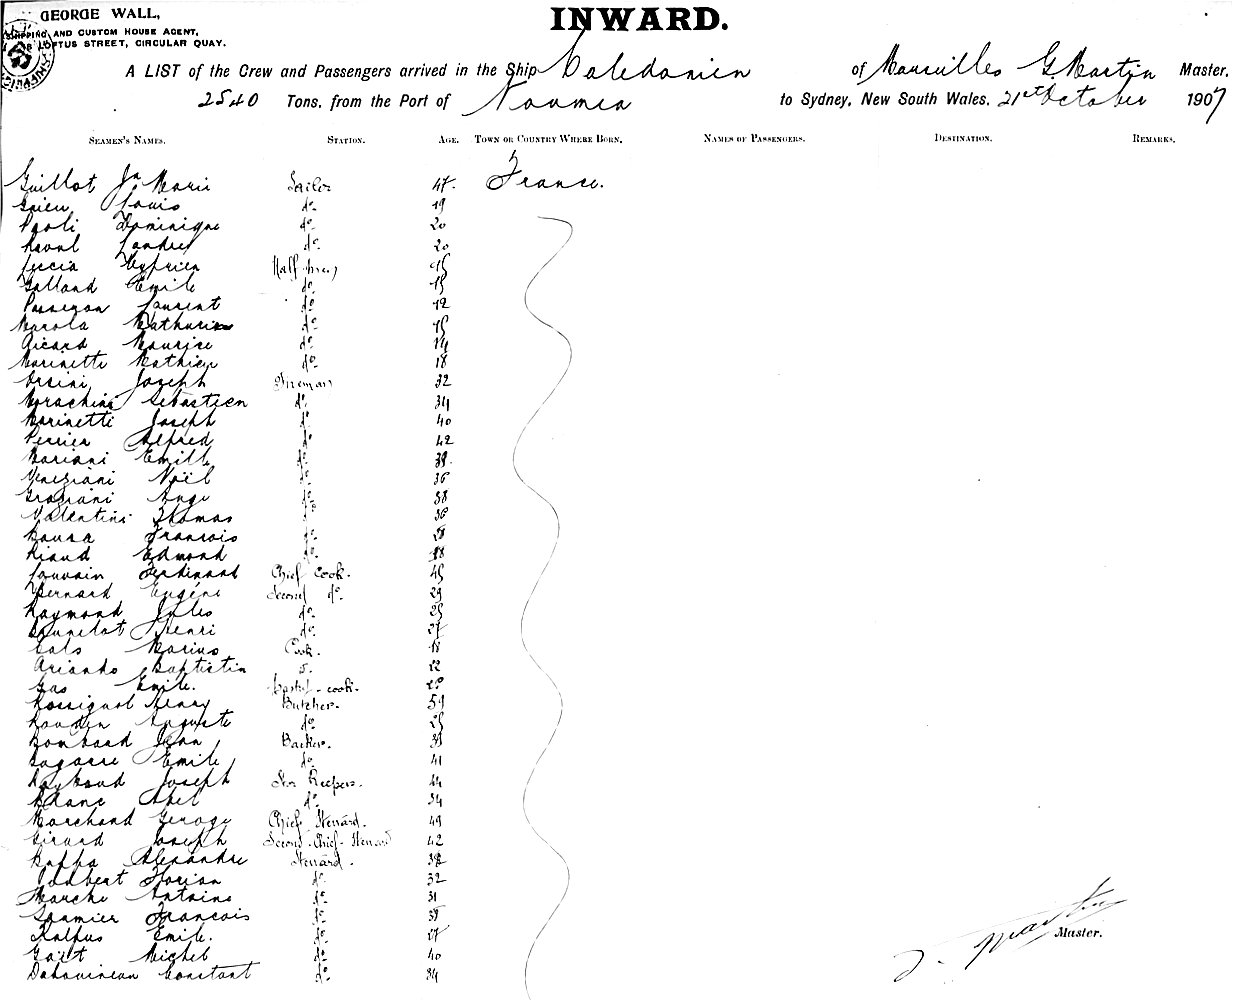 GEORGE WALL,
SHIPPING AND CUSTOM HOUSE AGENT,
LOFTUS STREET, CIRCULAR QUAY.
INWARD.
A LIST of the Crew and Passengers arrived in the Ship Caledonien of Marseilles G Martin Master,
2540 Tons, from the Port of Noumea to Sydney, New South Wales, 21st October 1907
SEAMEN'S NAMES. STATION. AGE. TOWN OR COUNTRY WHERE BORN. NAMES OF PASSENGERS. DESTINATION. REMARKS.
Guillot Jn Marie Sailor 47. France.
Louis do 19
Paoli Dominique do 20
Raoul do 20
Luccia Cyprien Half-
Galland Emile do
Laurent do
Mathurin do
Ricard Maurice do
Marinetti Mathieu do 18
Orsini Joseph Fireman 32
Morachini Sebastien do 34
Marinetti Joseph do 40
Perrier Alfred do 42
Mariani Emile do 39.
Veneziani Noël do 36
Graziani Ange do 38
Valentini Thomas 36
François do 28
Riaud Edmond do
Louvain Ferdinand Chief Cook. 45
Bernard Eugène Second do 29
Raymond Jules do 25
Henri do 27
Marius Cook. 18
Baptistin 22
Gas Emile. cook.
Rossignol Henry Butcher. 59
Auguste do 25
Bombard Jean Backer.
Emile do 41
Raybaud Joseph Stor Keeper. 44
Blanc Abel do 34
Marchand George Chief Steward. 49
Girard Joseph Second Chief Steward 42
Raffa Alexandre Steward. 38
Joubert Florian do 32
Antoine do 31
Saumier François do
Emile. do 27
Michel do 40
Constant do 34
Martin
Master.